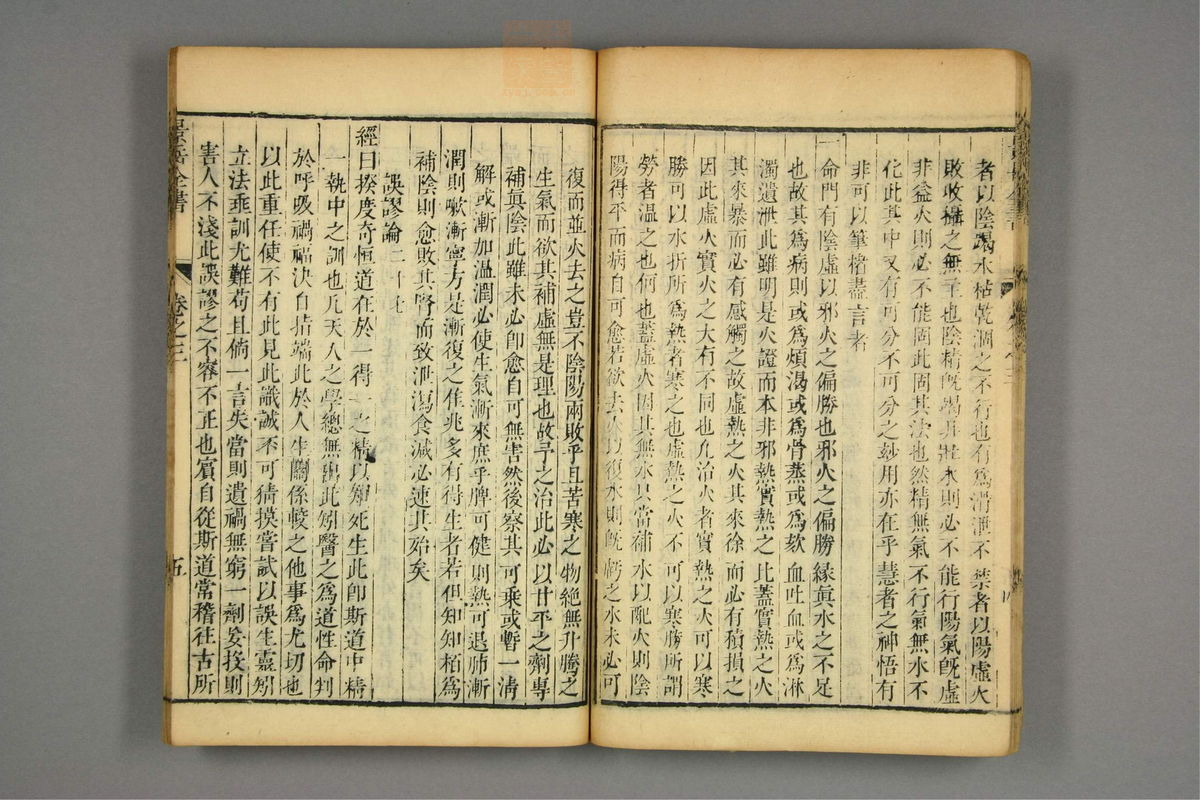 者以陰竭水枯乾涸之不行也有爲滑泄不禁者以陽虛火
敗收攝之無主也陰精旣竭非壯水則必不能行陽氣旣虛
非益火則必不能固此固其法也然精無氣不行氣無水不
化此其中又有可分不可分之玅用亦在乎慧者之神悟有
非可以筆楮盡言者
一命門有陰虛以邪火之偏勝也邪火之偏勝緣眞水之不足
也故其爲病則或爲煩渴或爲骨蒸或爲欬血吐血或爲淋
濁遺泄此雖明是火證而本非邪熱實熱之比蓋實熱之火
其來暴而必有感觸之故虛熱之火其來徐而必有積損之
因此虛火實火之大有不同也凡治火者實熱之火可以寒
勝可以水折所爲熱者寒之也虛熱之火不可以寒勝所謂
勞者温之也何也蓋虛火因其無水只當補水以配火則陰
陽得平而病自可愈若欲去火以復水則旣虧之水未必可
景岳全書
卷之三
五
復而並火去之豈不陰陽兩敗乎且苦寒之物絶無升騰之
生氣而欲其補虛無是理也故予之治此必以甘平之劑專
補眞陰此雖未必卽愈自可無害然後察其可乘或暫一清
解或漸加温潤必使生氣漸來庶乎脾可健則熱可退肺漸
潤則嗽漸寧方是漸復之佳兆多有得生者若但知知栢爲
補陰則愈敗其腎而致泄瀉食減必速其殆矣
誤謬論 二十七
經曰揆度奇恒道在於一得一之精以知死生此卽斯道中精
一執中之訓也凡天人之學總無出此矧醫之爲道性命判
於呼吸禍福決自指端此於人生關係較之他事爲尤切也
以此重任使不有此見此識誠不可猜摸嘗試以誤生靈矧
立法垂訓尤難苟且倘一言失當則遺禍無窮一劑妄投則
害人不淺此誤謬之不容不正也賓自從斯道常稽往古所